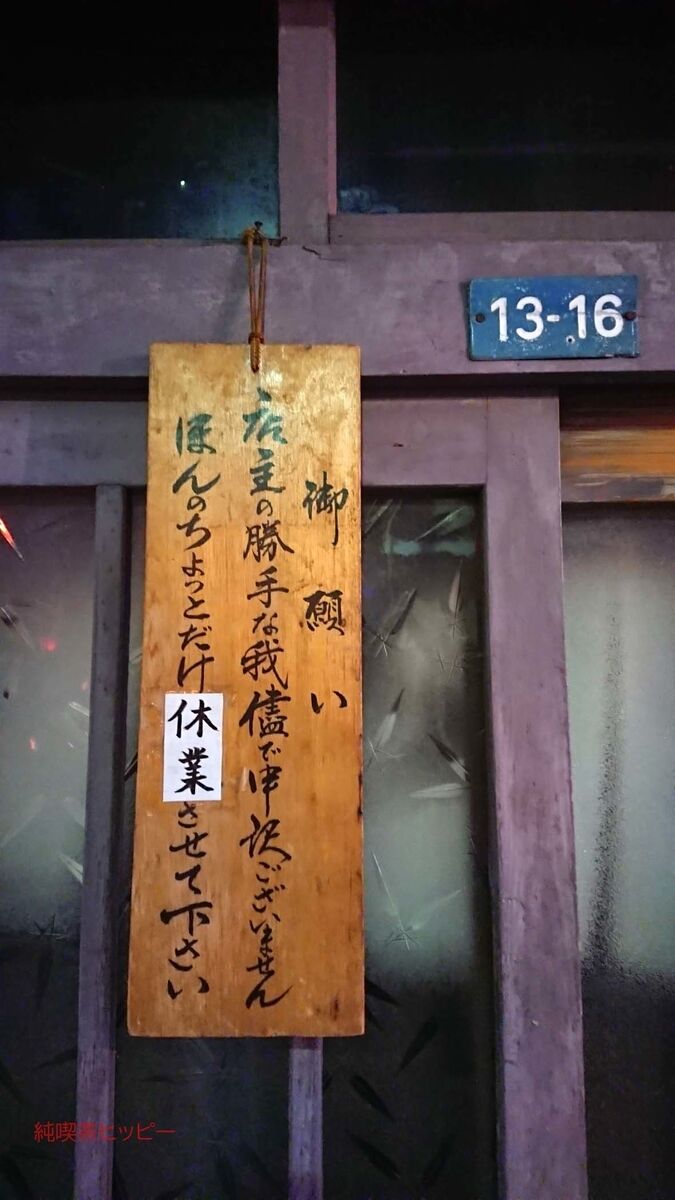 13-16
御願い
店主の勝手な我儘で申訳ございません
ほんのちょっとだけ休業させて下さい
純喫茶ヒッピー